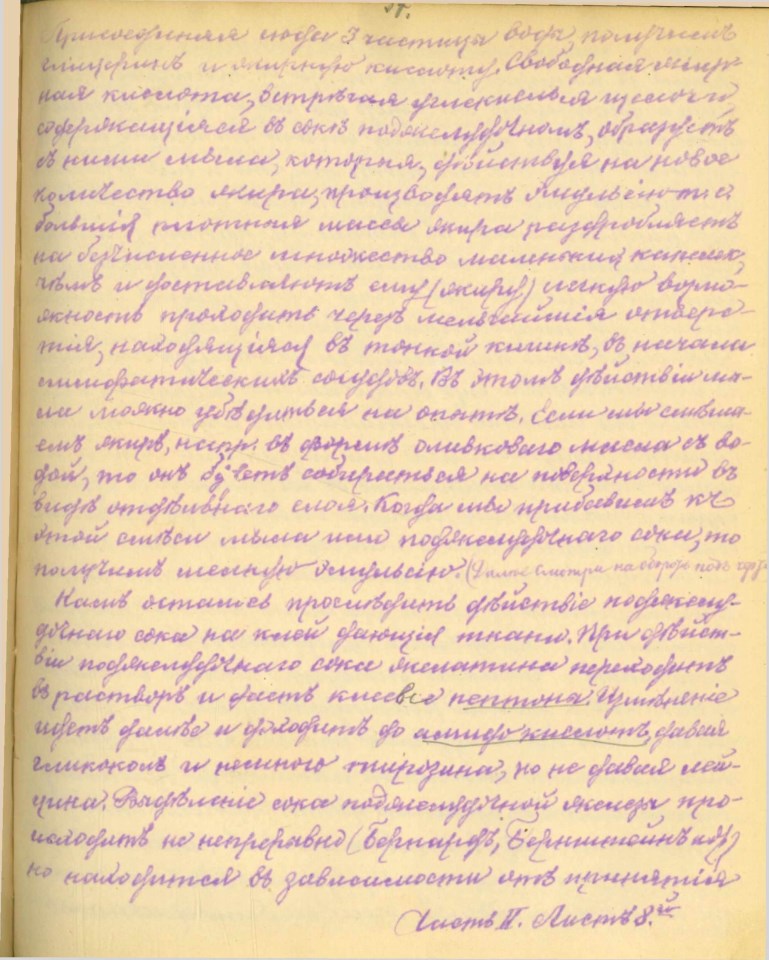 57.
Присоединяя сюда 3 частицы воды, получимъ
глицеринъ и жирную кислоту. Свободная жир-
ная кислота, встрѣчая углекислыя щелочи,
содержащіяся въ сокѣ поджелудочномъ, образуетъ
съ ними мыла, которыя, дѣйствуя на новое
количество жира, производятъ эмульсію т. е.
большія плотныя массы жира раздробляютъ
на безчисленное множество маленькихъ капелек,
чѣмъ и доставляютъ ему (жиру) легкую возмо-
жность проходить черезъ мельчайшія отверс-
тія, находящіяся въ тонкой кишкѣ, въ начали
лимфатическихъ сосудовъ. Въ этомъ дѣйствіи мы-
ла можно убѣдиться на опытѣ. Если мы смѣша-
емъ жиръ, напр. въ формѣ оливковаго масла съ во-
дой, то онъ будетъ собираться на поверхности въ
видѣ отдѣльнаго слоя. Когда мы прибавимъ къ
этой смѣси мыла или поджелудочнаго сока, то
получимъ мелкую эмульсію. (Далѣе смотри на оборотѣ
Намъ осталось прослѣдить дѣйствіе поджелу-
дочнаго сока на клей дающія ткани. При дѣйст-
віи поджелудочнаго сока желатина переходитъ
въ растворъ и даетъ клеевые пептоны. Измѣненіе
идетъ далѣе и доходитъ до амидо кислотъ, давая
гликоколъ и немного тирозина, но не давая лей-
цина. Выдѣленіе сока поджелудочной железы про-
исходитъ не непрерывно (Бернаръ, Бернштейнъ и др.)
но находится въ зависимости отъ принятія
Часть II. Листъ 8.й